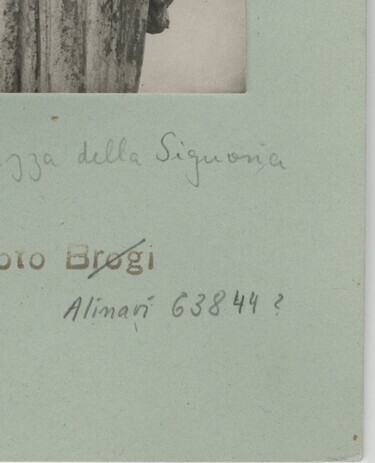 zza della Signoria
oto Brogi
Alinari 63844 ?